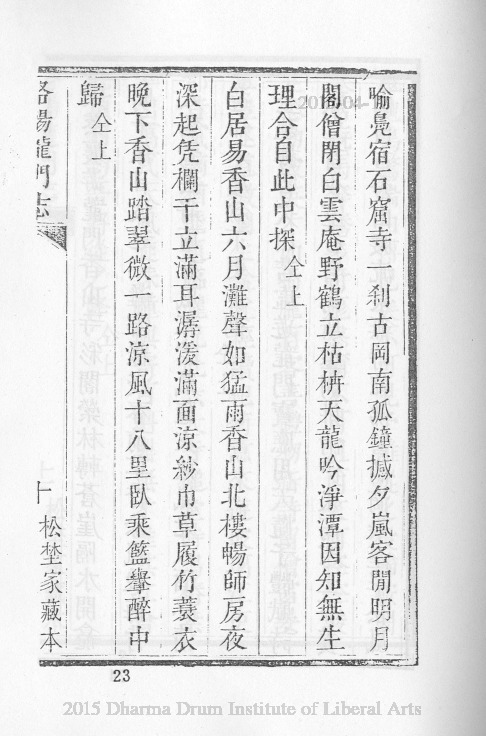 喻鳧宿石窟寺一刹古岡南孤鐘撼夕嵐客閒明月
閣僧閉白雲庵野鶴立枯枿天龍吟淨潭因知無生
理合自此中探仝上
白居易香山六月灘聲如猛雨香山北樓暢師房夜
深起凭欄干立滿耳潺湲滿面涼紗巾草履竹蓑衣
晚下香山踏翠微一路涼風十八里臥乘籃轝醉中
歸仝上
洛陽龍門志
十
松埜家藏本
23
2015 Dharma Drum Institute of Liberal Arts